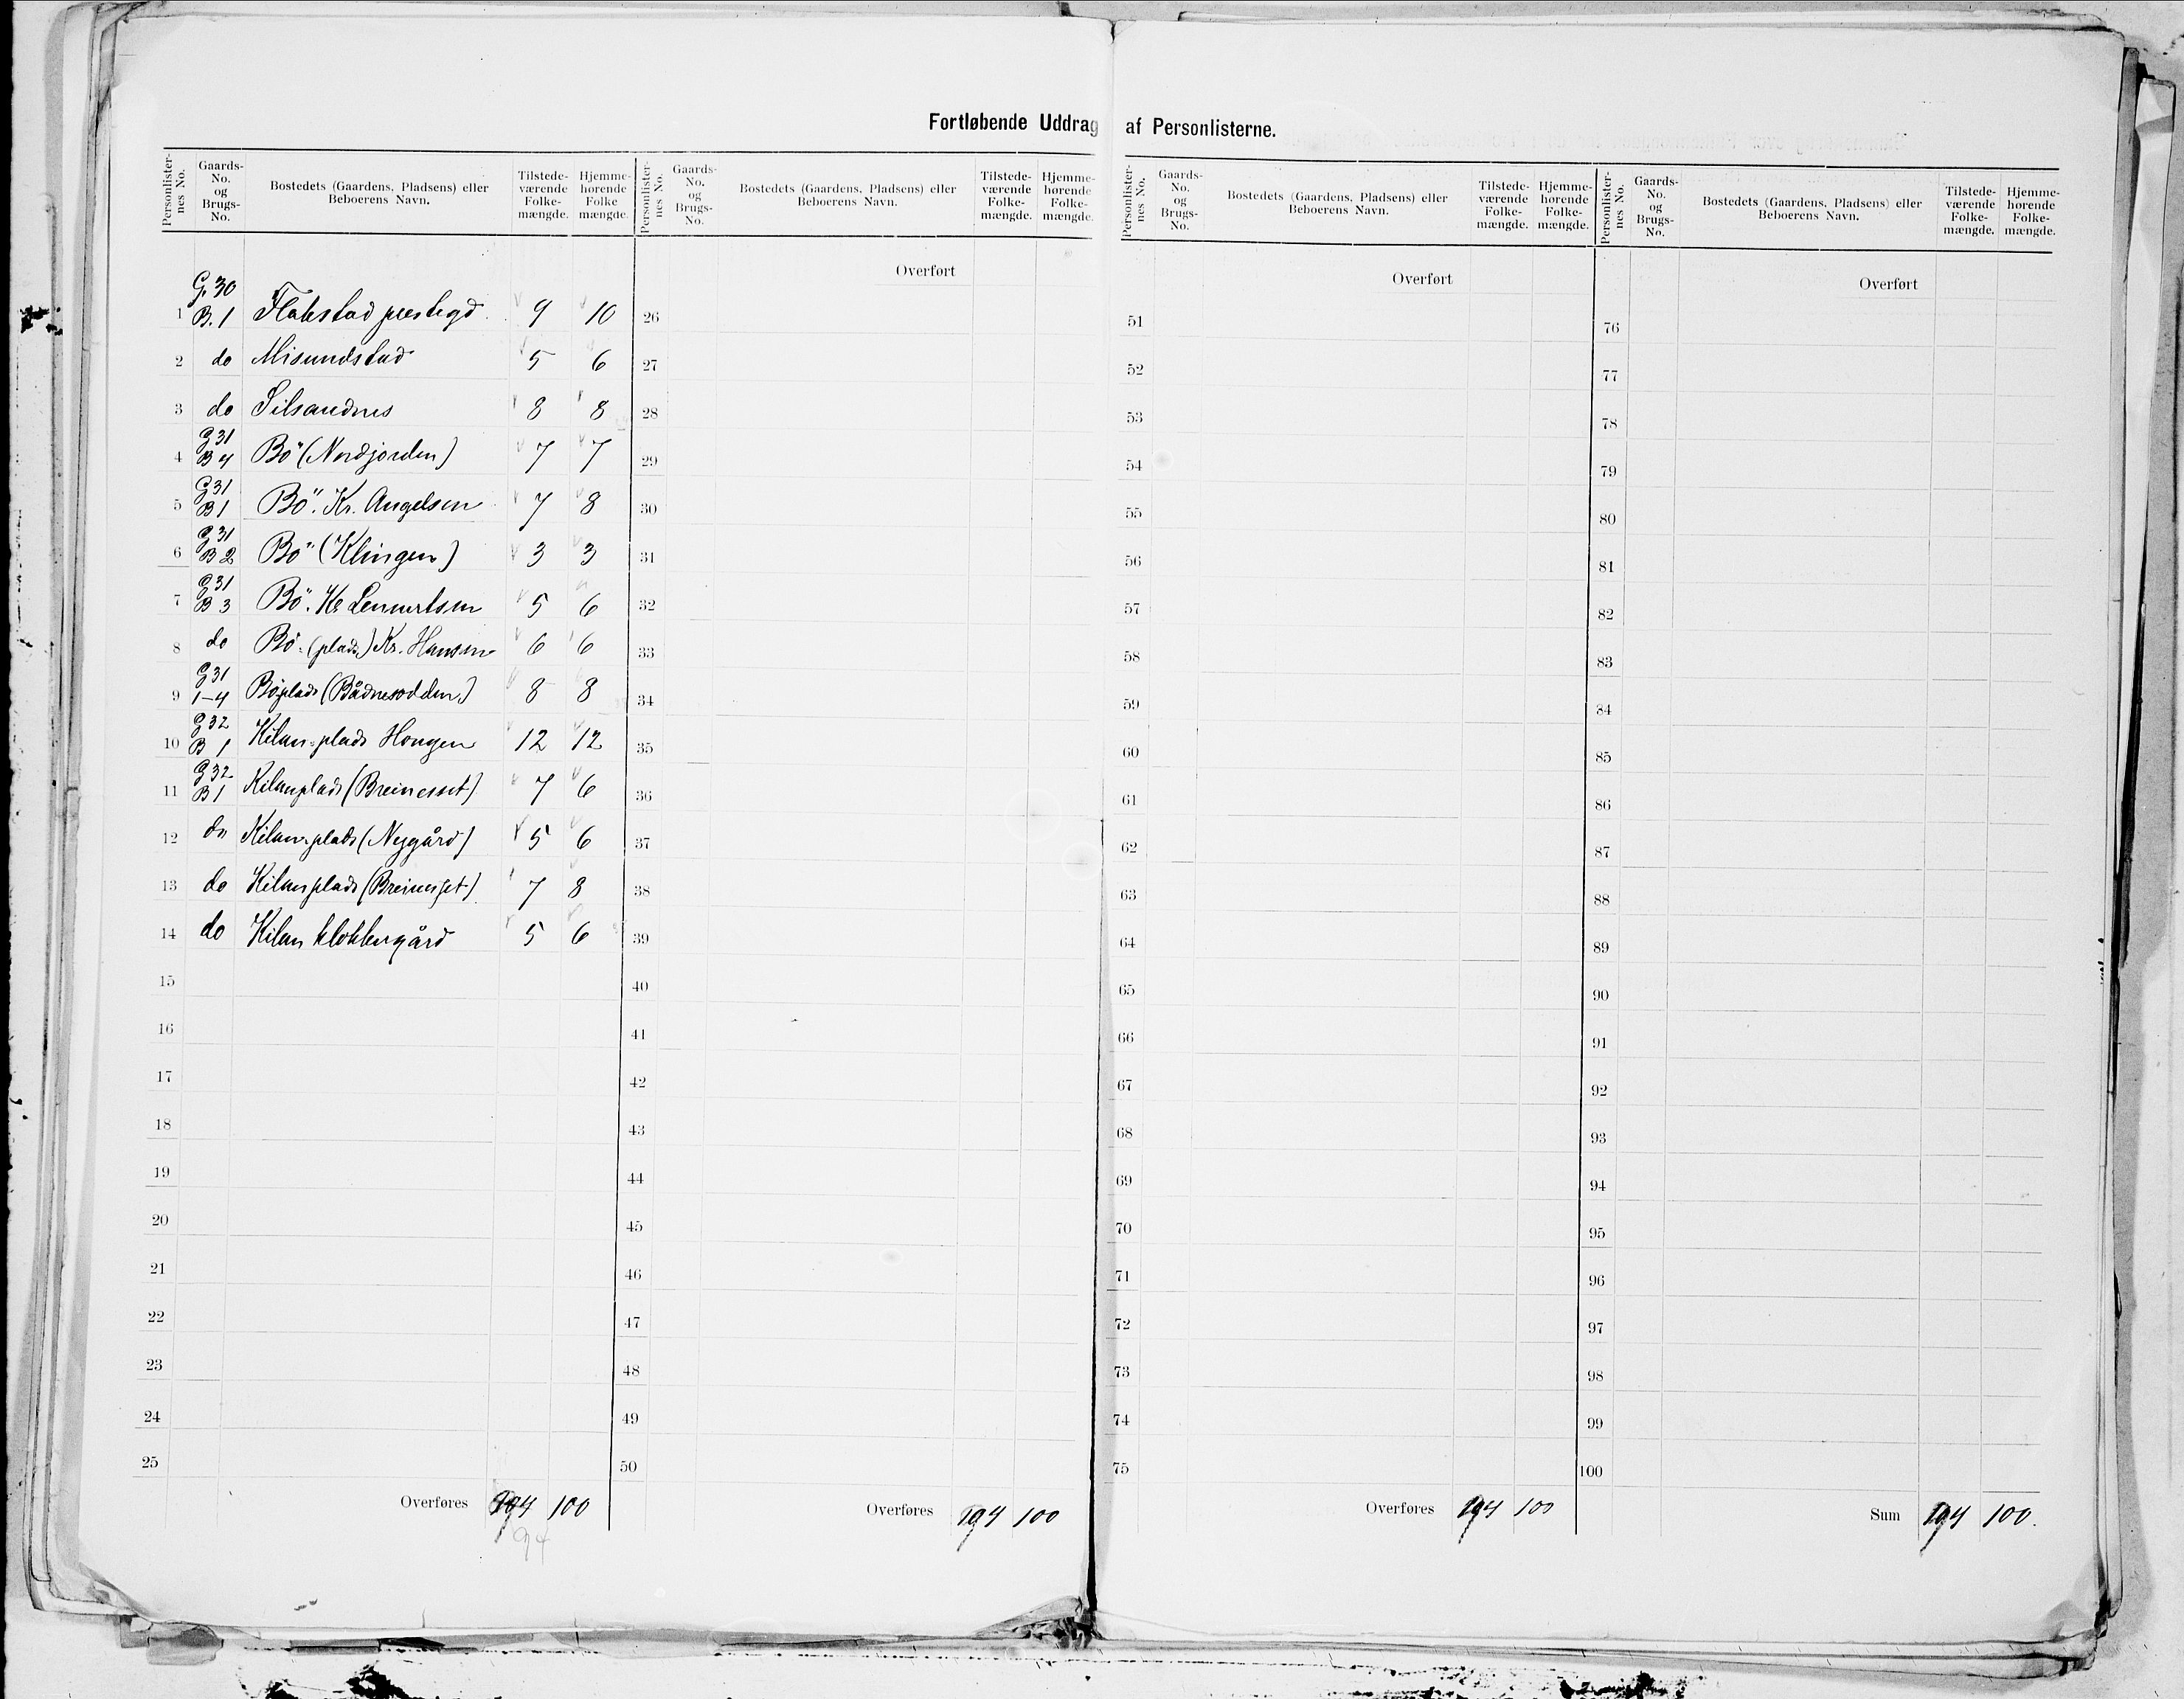 Fortløbende Uddrag af Personlisterne.
Personlister-nes No. Gaards-No. og Brugs-No. Bostedets (Gaardens, Pladsens) eller Beboerens Navn. Tilstede-værende Folke-mængde. Hjemme-hørende Folke mængde.
G. 30
1 B. 1 Flakstad prestegd. 9 10
2 do Misundstad 5 6
3 do Silsandnes 8 8
G 31
4 B 4 Bö (Nordjorden) 7 7
G 31
5 B 1 Bö. Kr. Angelsen 7 8
G 31
6 B 2 Bö (Klingen) 3 3
G 31
7 B 3 Bö. Kr Lennertsen 5 6
8 do Bö. (plads) Kr. Hansen 6 6
G 31
9 1-4 Böplads (Bådnesodden) 8 8
G 32
10 B 1 Kilan-plads Hongen 12 12
G 32
11 B 1 Kilanplads (Breinesset) 7 6
12 do Kilan-plads (Nygård) 5 6
13 do Kilanplads (Breinesset) 7 8
14 do Kilan klokkergård 5 6
15
16
17
18
19
20
21
22
23
24
25
Overføres 94 100
94
Personlister-nes No. Gaards-No. og Brugs-No. Bostedets (Gaardens, Pladsens) eller Beboerens Navn. Tilstede-værende Folke-mængde. Hjemme-hørende Folke-mængde.
Overført
26
27
28
29
30
31
32
33
34
35
36
37
38
39
40
41
42
43
44
45
46
47
48
49
50
Overføres 94 100
Personlister-nes No. Gaards-No. og Brugs-No. Bostedets (Gaardens, Pladsens) eller Beboerens Navn. Tilstede-værende Folke-mængde. Hjemme-hørende Folke-mængde.
Overført
51
52
53
54
55
56
57
58
59
60
61
62
63
64
65
66
67
68
69
70
71
72
73
74
75
Overføres 94 100
Personlister-nes No. Gaards-No. og Brugs-No. Bostedets (Gaardens, Pladsens) eller Beboerens Navn. Tilstede-værende Folke-mængde. Hjemme-hørende Folke-mængde.
Overført
76
77
78
79
80
81
82
83
84
85
86
87
88
89
90
91
92
93
94
95
96
97
98
99
100
Sum 94 100.